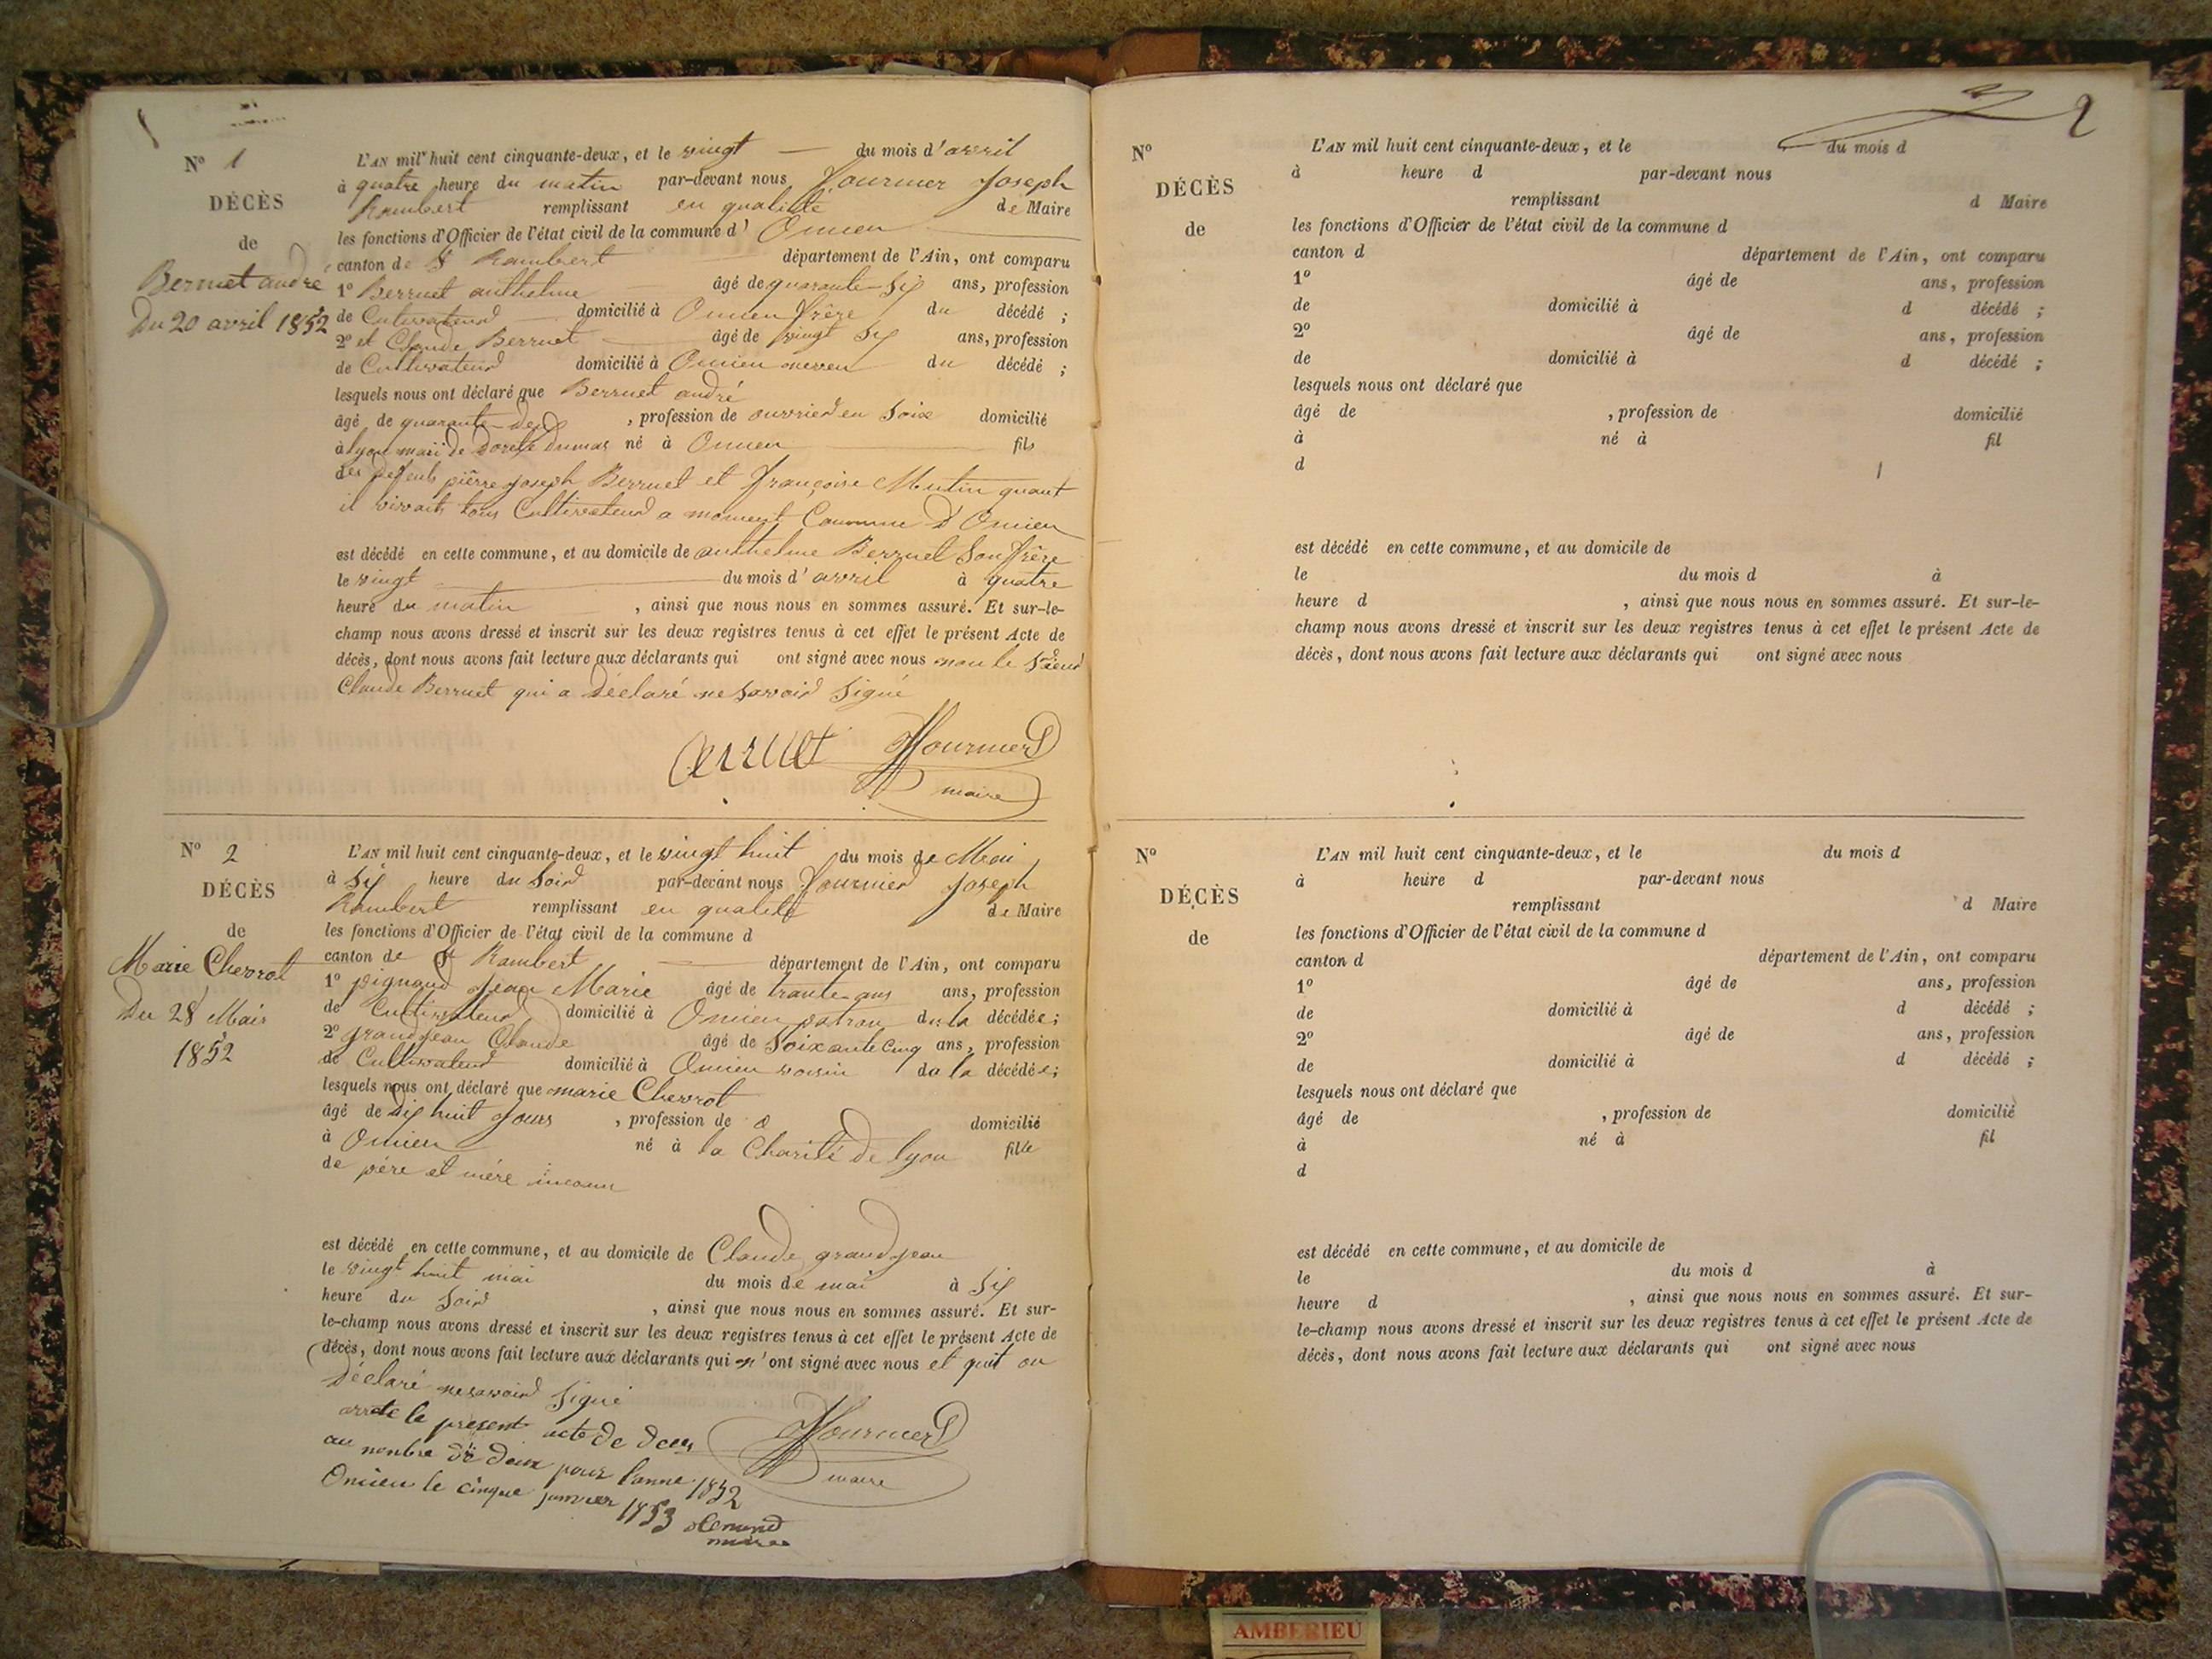 1
N° 1
DÉCÈS
de
Berruet andré
Du 20 avril 1852
L'AN mil huit cent cinquante-deux, et le vingt du mois d'avril
à quatre heure du matin par-devant nous fournier Joseph
Rambert remplissant en qualitte de Maire
les fonctions d'Officier de l'état civil de la commune d' Oncieu
canton de St Rambert département de l'Ain, ont comparu
1° Berruet anthelme âgé de quarante-six ans, profession
de Cultivateur domicilié à Oncieu frère du décédé ;
2° et Claude Berruet âgé de vingt six ans, profession
de Cultivateur domicilié à Oncieu neveu du décédé ;
lesquels nous ont déclaré que Berruet andré
âgé de quarante-deux, profession de ouvrier en Soie domicilié
à lyon mari de Dumas né à Oncieu fils
des defeuts pierre joseph Berruet et françoise Mutin quant
il vivait tous Cultivateur a moment Commune D'Oncieu
est décédé en cette commune, et au domicile de anthelme Berruet Son frère
le vingt du mois d'avril à quatre
heure du matin, ainsi que nous nous en sommes assuré. Et sur-le-
champ nous avons dressé et inscrit sur les deux registres tenus à cet effet le présent Acte de
décès, dont nous avons fait lecture aux déclarants qui ont signé avec nous non le Sieur
Claude Berruet qui a déclaré ne Savoir Signé
Berruet fournier
maire
N° 2
DÉCÈS
de
Marie Chevrot
Du 28 Mai
1852
L'AN mil huit cent cinquante-deux, et le vingt huit du mois de Mai
à Six heure du Soir par-devant nous fournier Joseph
Rambert remplissant en qualité de Maire
les fonctions d'Officier de l'état civil de la commune d
canton de St Rambert département de l'Ain, ont comparu
1° pignaud Jean Marie âgé de trante ans ans, profession
de Cultivateur domicilié à Oncieu patron du la décédée ;
2° grandjean Claude âgé de Soixante Cinq ans, profession
de Cultivateur domicilié à Oncieu voisin du la décédée ;
lesquels nous ont déclaré que marie Chevrot
âgé de dix huit Jours, profession de domicilié
à Oncieu né à la Charité de lyon fille
de père et mère inconu
est décédé en cette commune, et au domicile de Claude grandjean
le vingt huit mai du mois de mai à Six
heure du Soir, ainsi que nous nous en sommes assuré. Et sur-
le-champ nous avons dressé et inscrit sur les deux registres tenus à cet effet le présent Acte de
décès, dont nous avons fait lecture aux déclarants qui n'ont signé avec nous et quit on
déclaré ne savoir Signé
arrete le present acte de deces
au nonbre de deux pour l'anne 1852
Oncieu le cinque janvier 1853
maire
fournier
maire
2
N°
DÉCÈS
de
L'AN mil huit cent cinquante-deux, et le du mois d
à heure d par-devant nous
remplissant d Maire
les fonctions d'Officier de l'état civil de la commune d
canton d département de l'Ain, ont comparu
1° âgé de ans, profession
de domicilié à d décédé ;
2° âgé de ans, profession
de domicilié à d décédé ;
lesquels nous ont déclaré que
âgé de , profession de domicilié
à né à fil
d
est décédé en cette commune, et au domicile de
le du mois d à
heure d , ainsi que nous nous en sommes assuré. Et sur-le-
champ nous avons dressé et inscrit sur les deux registres tenus à cet effet le présent Acte de
décès, dont nous avons fait lecture aux déclarants qui ont signé avec nous
N°
DÉCÈS
de
L'AN mil huit cent cinquante-deux, et le du mois d
à heure d par-devant nous
remplissant d Maire
les fonctions d'Officier de l'état civil de la commune d
canton d département de l'Ain, ont comparu
1° âgé de ans, profession
de domicilié à d décédé ;
2° âgé de ans, profession
de domicilié à d décédé ;
lesquels nous ont déclaré que
âgé de , profession de domicilié
à né à fil
d
est décédé en cette commune, et au domicile de
le du mois d à
heure d , ainsi que nous nous en sommes assuré. Et sur-
le-champ nous avons dressé et inscrit sur les deux registres tenus à cet effet le présent Acte de
décès, dont nous avons fait lecture aux déclarants qui ont signé avec nous
AMBERIEU